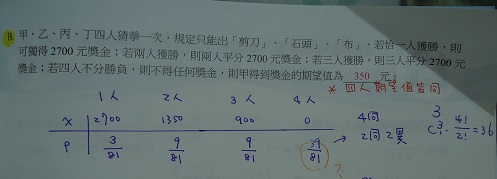 B. 甲、乙、丙、丁四人猜拳一次，規定只能出「剪刀」、「石頭」、「布」，若恰一人獲勝，則
可獨得 2700 元獎金；若兩人獲勝，則兩人平分 2700 元獎金；若三人獲勝，則三人平分 2700 元
獎金；若四人不分勝負，則不得任何獎金，則甲得到獎金的期望值為 350 元。
* 四人期望值皆同
1人 2人 3人 4人
X 2700 1350 900 0
P 3/81 9/81 9/81 39/81 ?
→ 4同
2同2異
C · 4!/2! = 36